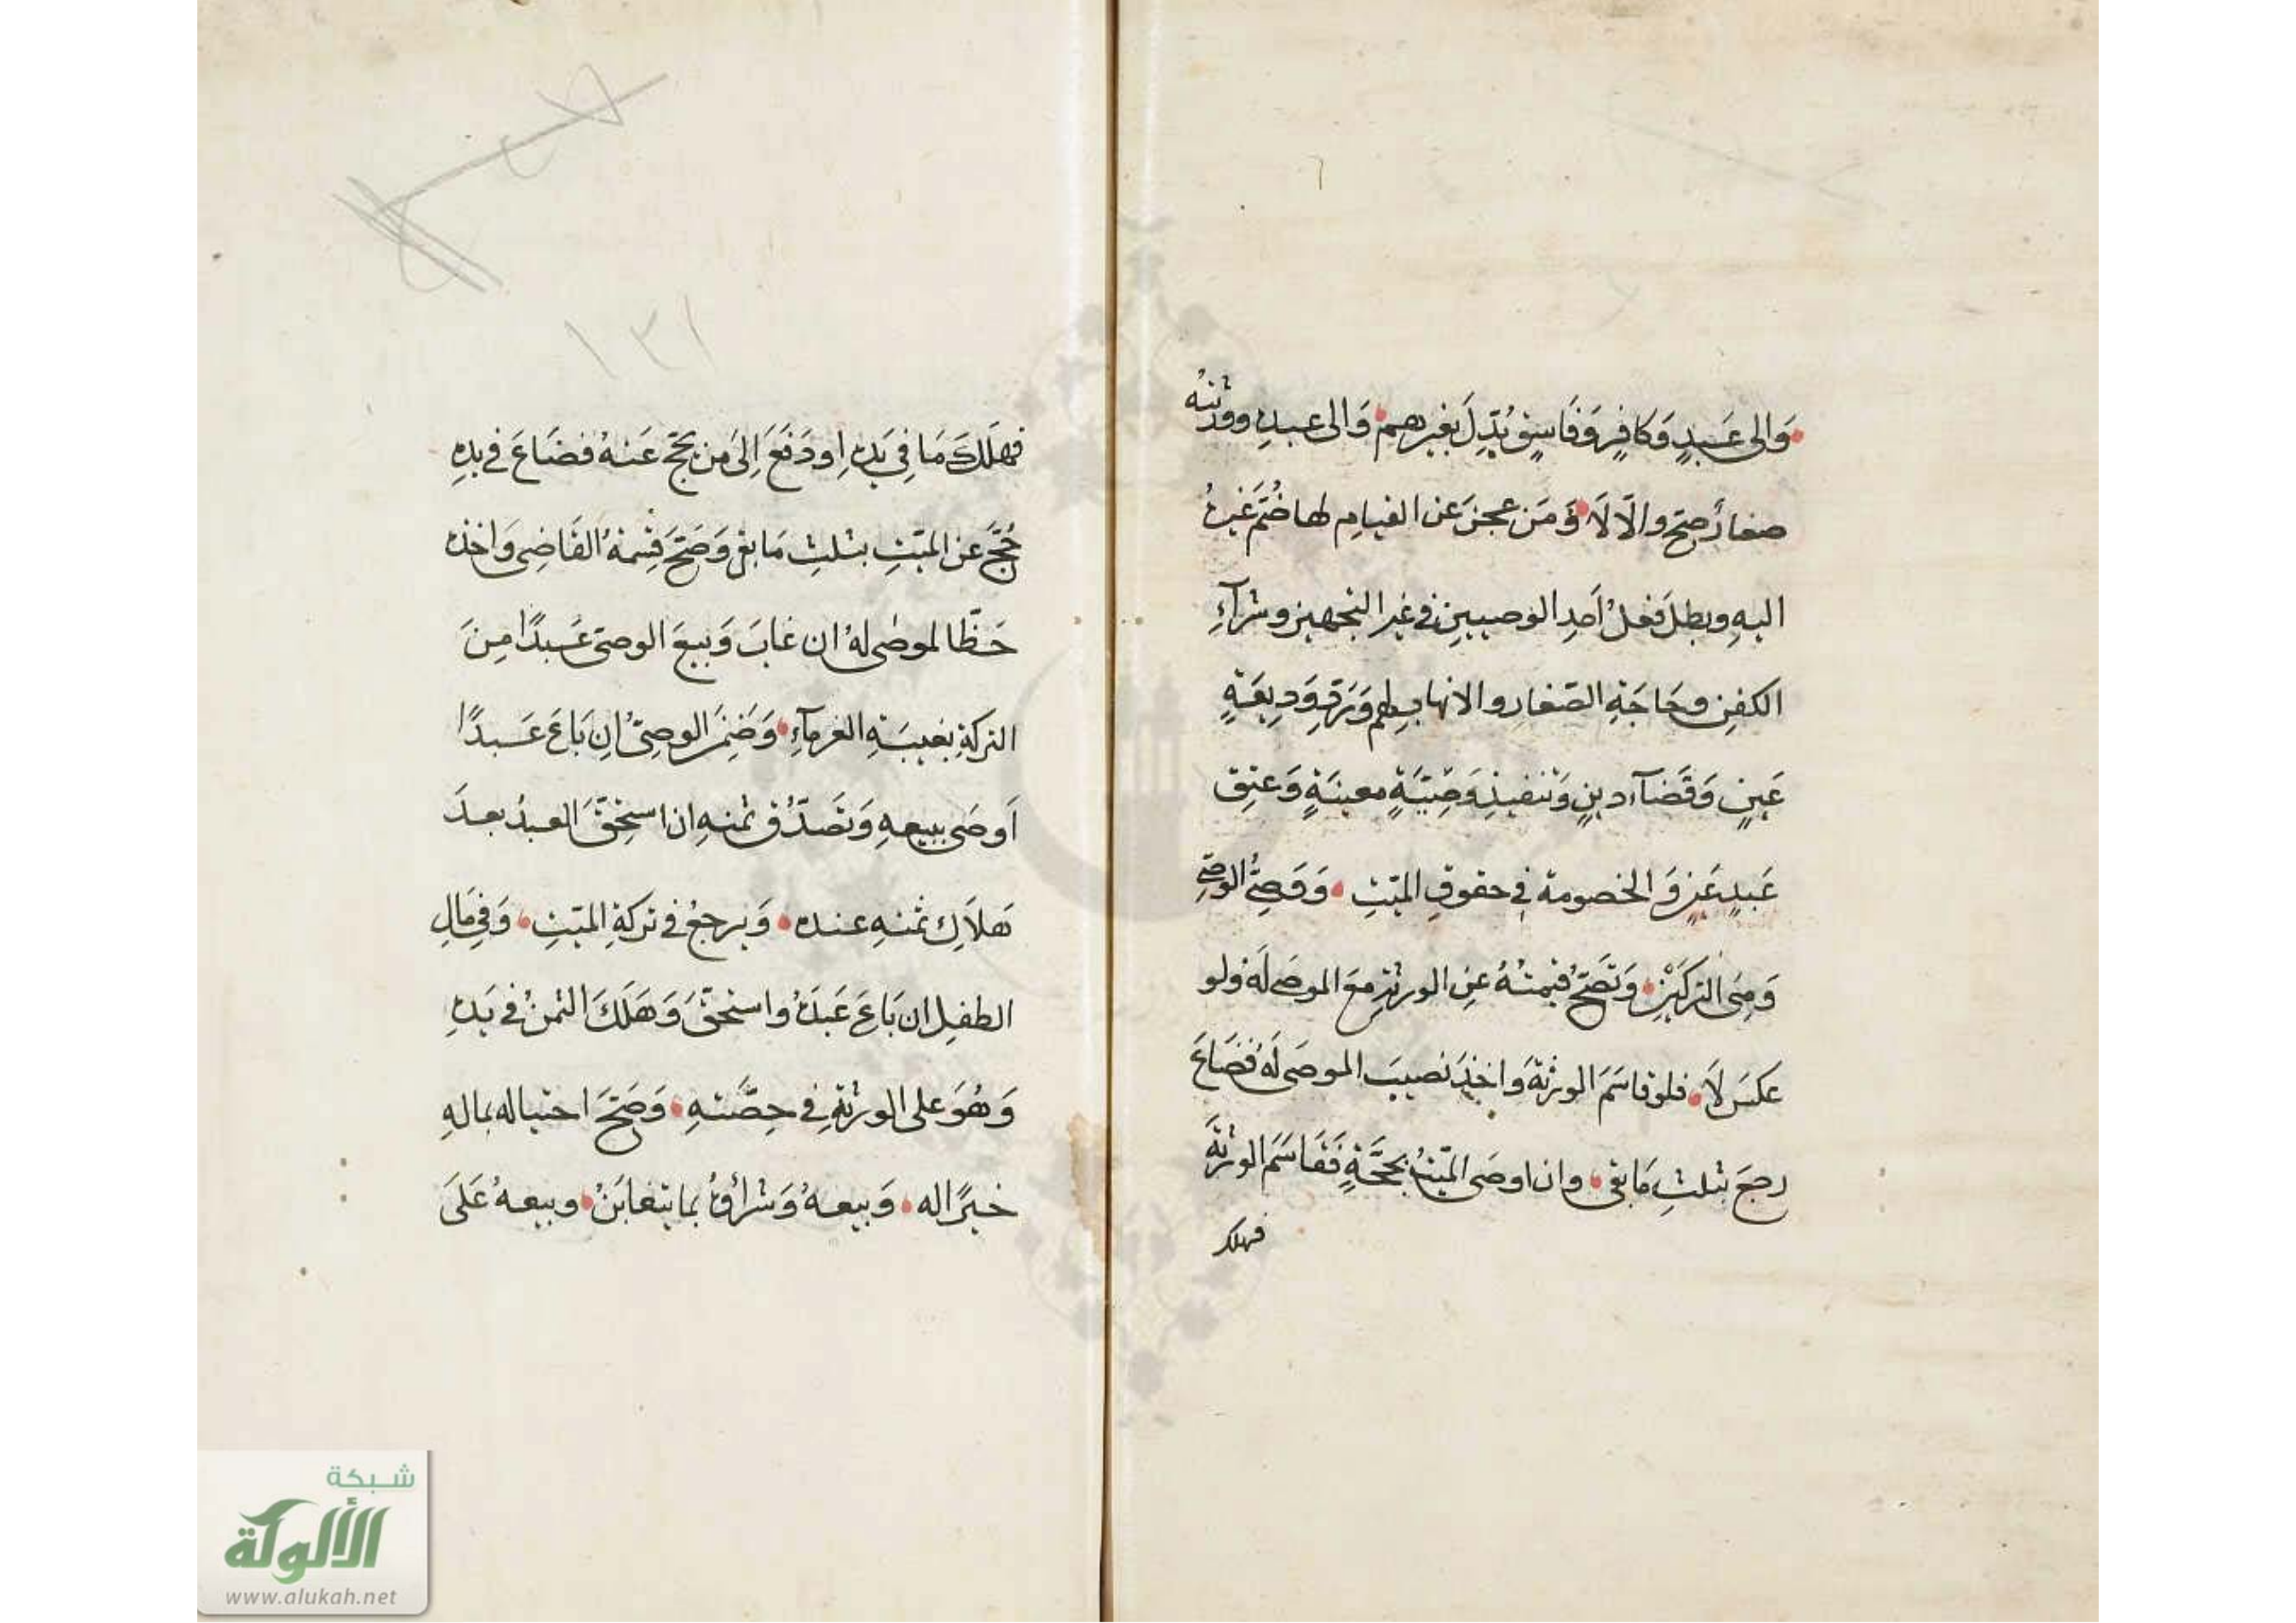 وَالى عَبدٍ وَكافِرٍ وَفَاسِقٍ بُدِّلَ بغيرهم وَالى عبدِه وورثتُه
صغارٌ صحَّ والّا لَا وَمَن عجزَ عن القيامِ لها ضُمَّ غيرُه
اليهِ وبطلَ فعلُ اَحدِ الوصيينِ في غيرِ التجهيز وشرآءِ
الكفنِ وحَاجَةِ الصّغارِ والاتهاب لهم وَردِّ وَدِيعَةٍ
عَينٍ وَقَضَآء دينٍ وَتنفيذِ وَصِيَّةٍ معينَةٍ وَعتقِ
عَبدٍ عَينٍ وَ الخصومة في حقوقِ الميّتِ وَوَصِيُّ الوصيِّ
وَصِيُّ التركتَيْنِ وَتَصحُّ قسمتُهُ عنِ الورثةِ مَعَ الموصَى لَهُ ولو
عكسَ لَا فلو قاسَمَ الورثةَ وَاخذَ نصيبَ الموصَى لَهُ فضَاعَ
رجعَ بثلثِ مَا بقى وان اوصَى الميّتُ بحجَّةٍ فَقَاسَم الورثةَ
فهلك
فهَلَكَ مَا في يَدِه او دَفَعَ اِلىَ من يحجّ عَنهُ فضَاعَ في يدِه
حُجَّ عن الميّتِ بثلثِ مَا بقى وَصَحَّ قِسْمةُ القَاضِى وَاخذه
حَظّ الموصٰى لهُ ان غابَ وَبيعَ الوصىّ عَبدًا مِنَ
التركةِ بغيبَةِ الغرمآءِ وَضَمِنَ الوصِىُّ اِن بَاعَ عَبدًا
اَوصَى ببيعهِ وَتَصَدُّق ثمنهِ ان استحِقَّ العبدُ بعدَ
هَلاَكِ ثمنهِ عنده وَيرجعُ في تركةِ الميّتِ وَفي مَالِ
الطفلِ ان بَاعَ عَبدَهُ واستحقَّ وَهَلَكَ الثمنُ في يَدِه
وَهُوَ على الورثةِ في حِصَّتهِ وَصَحَّ احتياله بمالهِ
خيرًا له وَبيعهُ وَشراؤُهُ بما يتغابَنُ وبيعهُ عَلَى
١٣١
شبكة
الألوكة
www.alukah.net